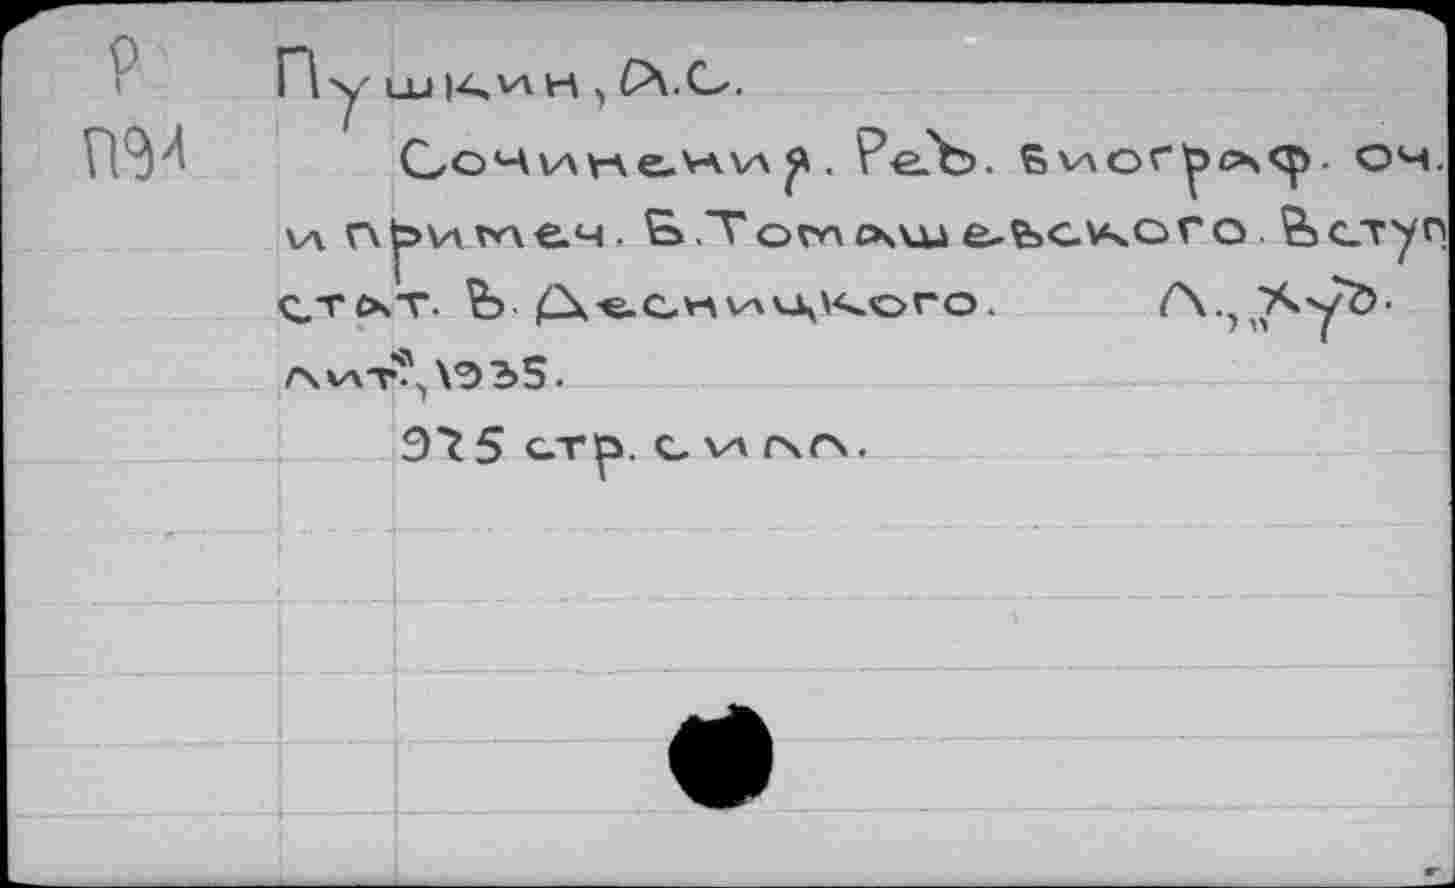 Р
П91
Пушкин, А.С.
Сочинения. Ред. биограф. оч.
и примеч. Б.Томашевского. Вступ
стат. В. Десницкого. Л., „Худ.
лит", 1935.
975 стр. с илл.